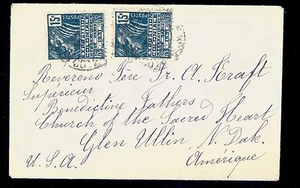 Révérend Père Fr. A. Kraft
Supérieur
Benedictine Fathers
Church of the Sacred Heart
Glen Ullin, N. Dak.
U.S.A. Amérique